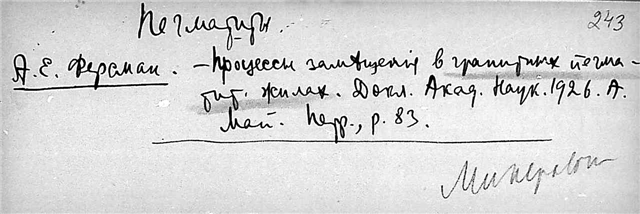 Пегматиты.
243
А. Е. Ферсман. – Процессы замѣщенія в гранитных пегма-
тит. жилах. Докл. Акад. Наук. 1926. А.
Май. Петр., р. 83.